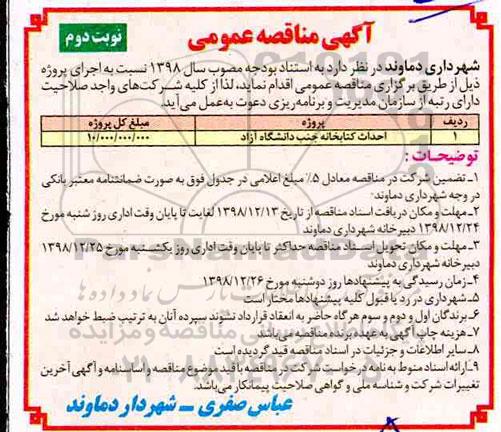 آگهی مناقصه عمومی
نوبت دوم
شهرداری دماوند در نظر دارد به استناد بودجه مصوب سال ۱۳۹۸ نسبت به اجرای پروژه
ذیل از طریق برگزاری مناقصه عمومی اقدام نماید، لذا از کلیه شرکت‌های واجد صلاحیت
دارای رتبه از سازمان مدیریت و برنامه‌ریزی دعوت به‌عمل می‌آید.
ردیف پروژه مبلغ کل پروژه
۱ احداث کتابخانه جنب دانشگاه آزاد ۱۰/۰۰۰/۰۰۰/۰۰۰
توضیحات :
۱ـ تضمین شرکت در مناقصه معادل ۵٪ مبلغ اعلامی در جدول فوق به صورت ضمانتنامه معتبر بانکی
در وجه شهرداری دماوند
۲ـ مهلت و مکان دریافت اسناد مناقصه از تاریخ ۱۳۹۸/۱۲/۱۳ لغایت تا پایان وقت اداری روز شنبه مورخ
۱۳۹۸/۱۲/۲۴ دبیرخانه شهرداری دماوند
۳ـ مهلت و مکان تحویل اسناد مناقصه حداکثر تا پایان وقت اداری روز یکشنبه مورخ ۱۳۹۸/۱۲/۲۵
دبیرخانه شهرداری دماوند
۴ـ زمان رسیدگی به پیشنهادها روز دوشنبه مورخ ۱۳۹۸/۱۲/۲۶
۵ـ شهرداری در رد یا قبول کلیه پیشنهادها مختار است
۶ـ برندگان اول و دوم و سوم هرگاه حاضر به انعقاد قرارداد نشوند سپرده آنان به ترتیب ضبط خواهد شد
۷ـ هزینه چاپ آگهی به عهده برنده مناقصه می‌باشد
۸ـ سایر اطلاعات و جزئیات در اسناد مناقصه قید گردیده است
۹ـ ارائه اسناد منوط به نامه درخواست شرکت در مناقصه با قید موضوع مناقصه و اساسنامه و آگهی آخرین
تغییرات شرکت و شناسه ملی و گواهی صلاحیت پیمانکار می‌باشد.
عباس صفری ـ شهردار دماوند